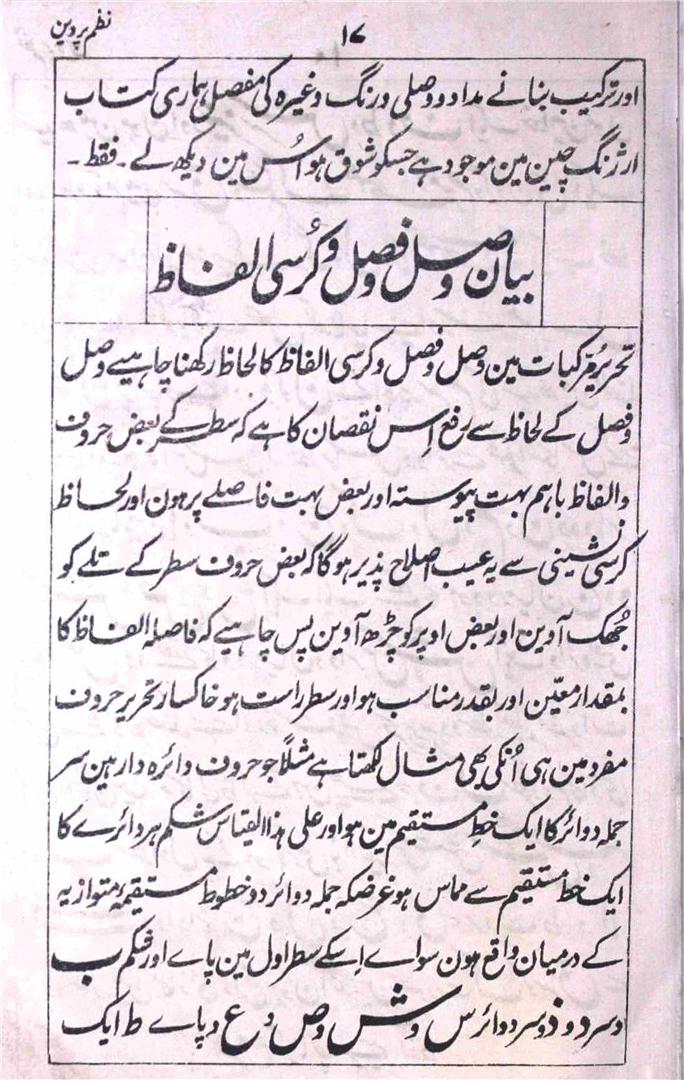 نظم پروین
۱۷
اور ترکیب بنانے مداد و وصلی و رنگ وغیرہ کی مفصل ہماری کتاب
ارژنگ چین مین موجود ہے جسکو شوق ہو اُس مین دیکھ لے۔ فقط۔
بیان وصل و فصل و کُرسی الفاظ
تحریر مرکبات مین وصل و فصل و کرسی الفاظ کا لحاظ رکھنا چاہیے وصل
و فصل کے لحاظ سے رفع اِس نقصان کا ہے کہ سطر کے بعض حروف
و الفاظ باہم بہت پیوستہ اور بعض بہت فاصلے پر ہون اور لحاظ
کرسی نشینی سے یہ عیب اصلاح پذیر ہوگا کہ بعض حروف سطر کے تلے کو
جُھک آوین اور بعض اوپر کو چڑھ آوین پس چاہیے کہ فاصلہ الفاظ کا
بمقدار معیّن اور بقدر مناسب ہو اور سطر راست ہو خاکسار تحریر حروف
مفرد مین ہی اُنکی بھی مثال لکھتا ہے مثلاً جو حروف دائرہ دار ہین سر
جملہ دوائر کا ایک خطِ مستقیم مین ہو اور علی ہذا القیاس شکم ہر دائرے کا
ایک خط مستقیم سے مماس ہو غرضکہ جملہ دوائر دو خطوط مستقیمہ متوازیہ
کے درمیان واقع ہون سواے اِسکے سطر اول مین پاے اور شکم ب
و سر د و ذ و سر دوائر س و ش و ص و ع و پاے ط ایک